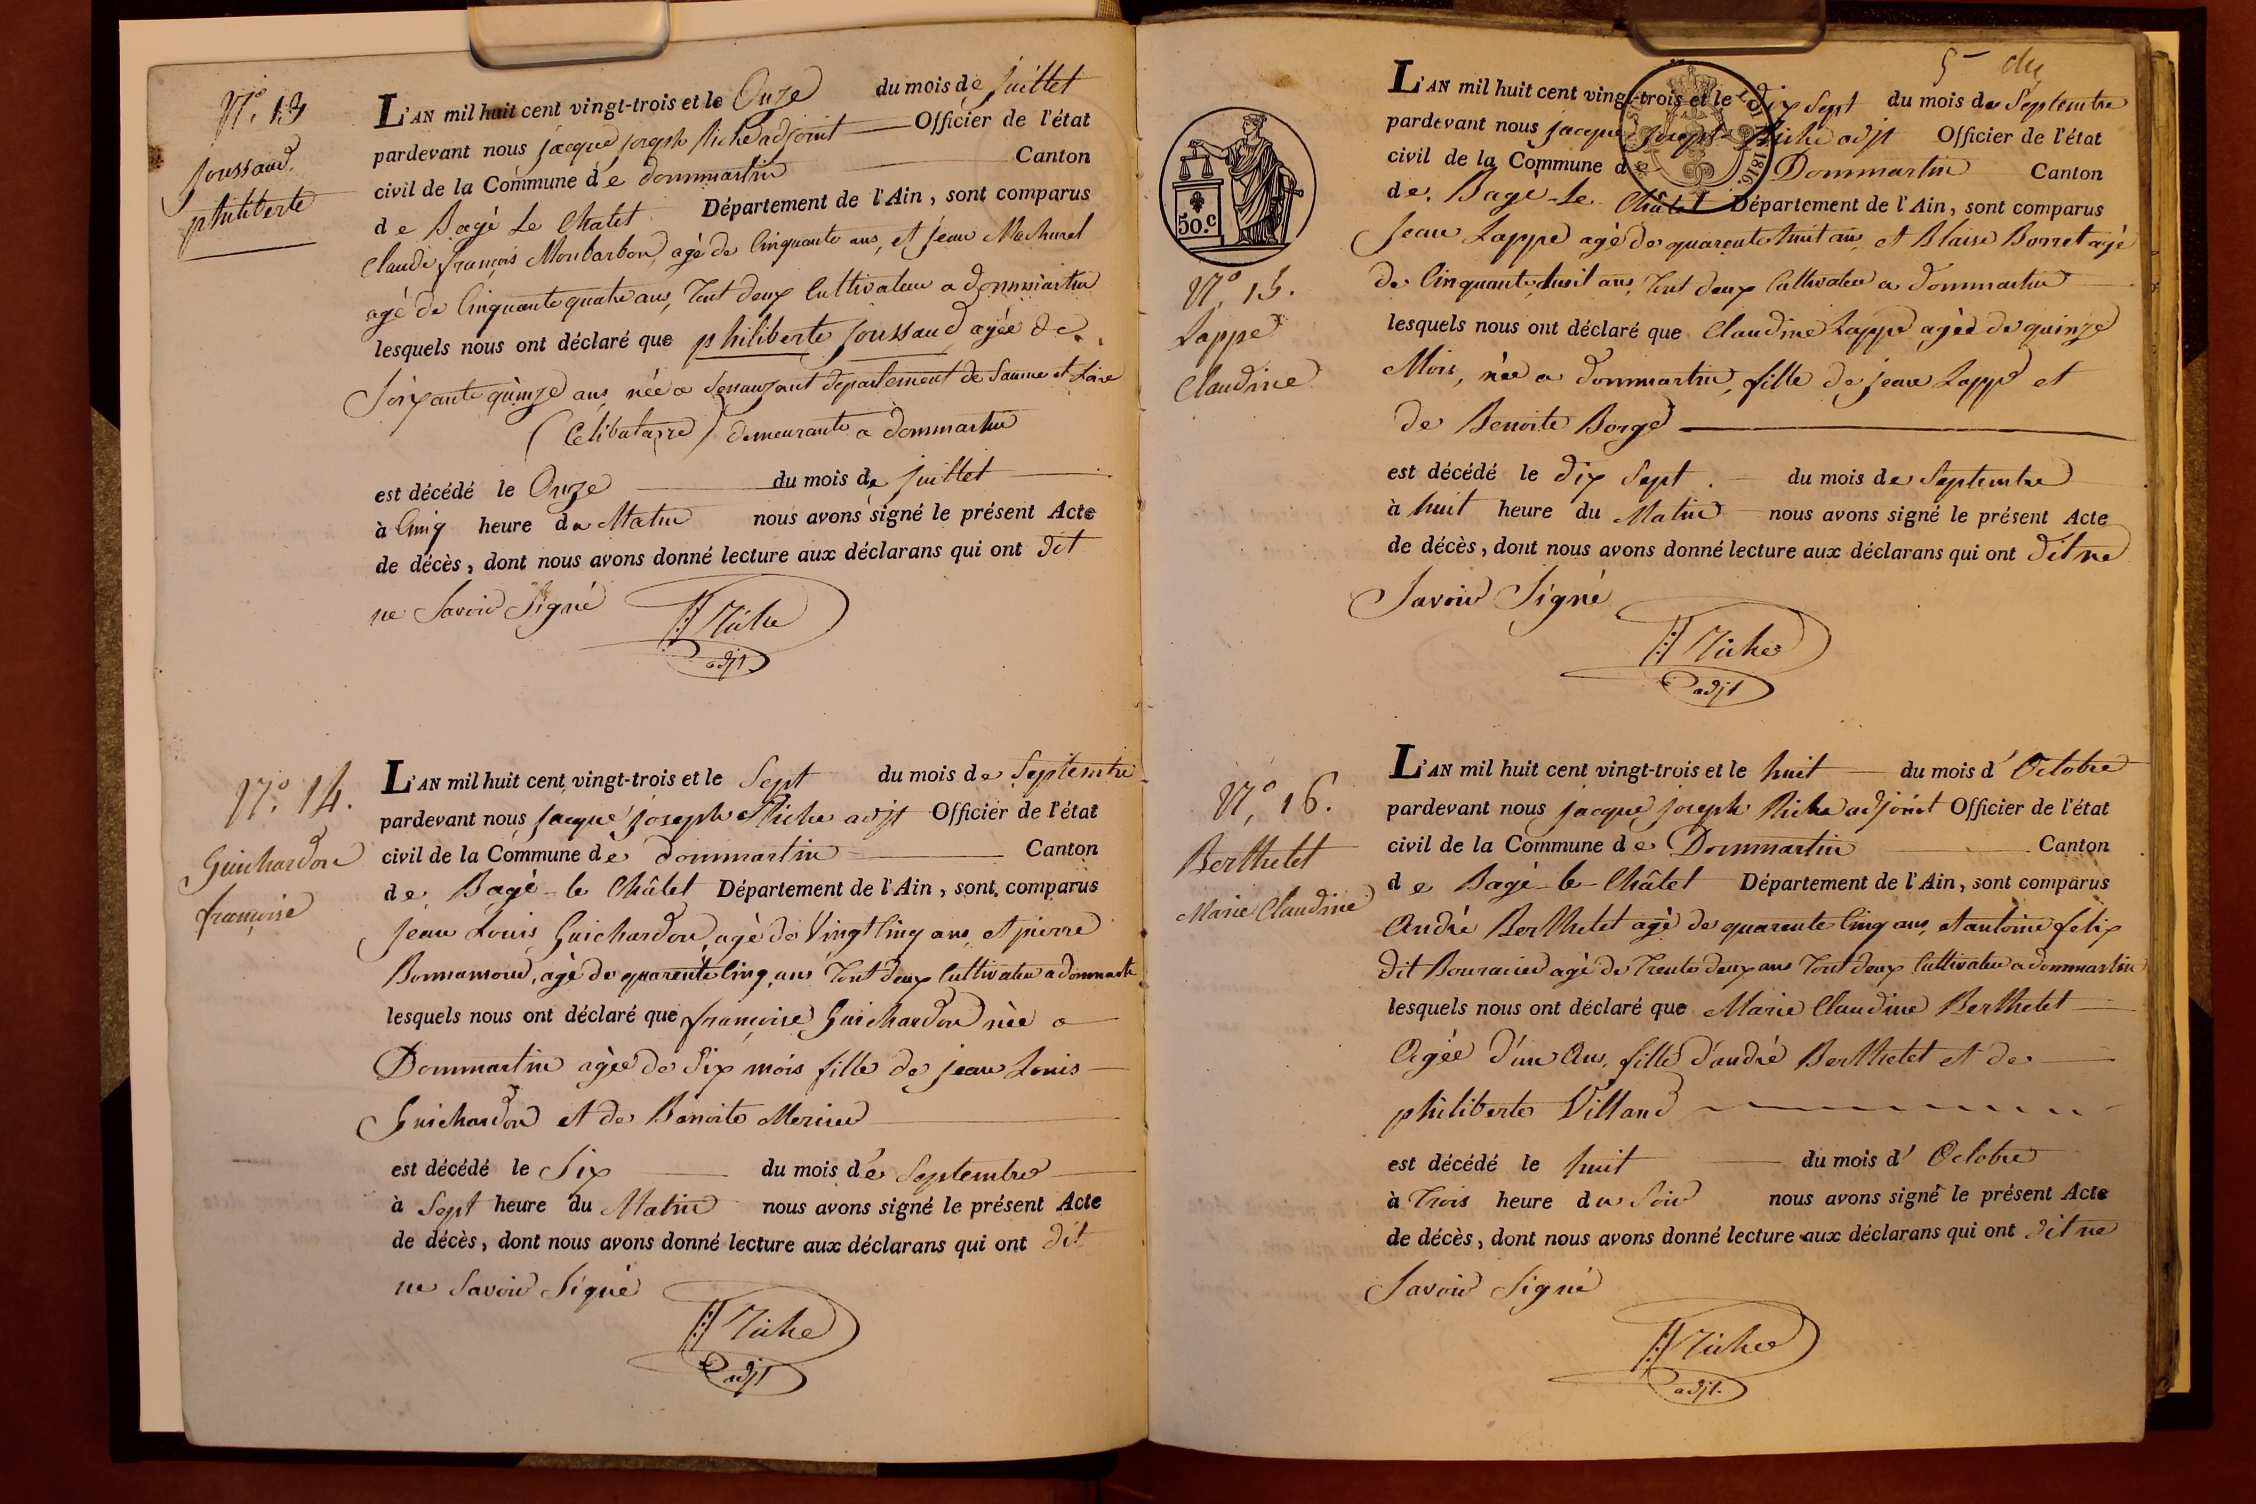 N.° 13
Joussaud
philiberte
L'AN mil huit cent vingt-trois et le Onze du mois de juillet
pardevant nous jacque joseph Riche adjoint Officier de l'état
civil de la Commune de dommartin Canton
de Bagé Le Chatel Département de l'Ain, sont comparus
Claude françois Monbarbon, agé de Cinquante ans, et jean Machurel
agé de Cinquante quatre ans, Tout deux Cultivateur a dommartin
lesquels nous ont déclaré que philiberte joussaud agée de
Soixante quinze ans, née a departement de Saune et Loire
(Célibataire) demeurante a dommartin
est décédé le Onze du mois de juillet
à Cinq heure du Matin nous avons signé le présent Acte
de décès, dont nous avons donné lecture aux déclarans qui ont dit
ne Savoir Signé
Riche
adjt
N.° 14.
Guichardon
françoise
L'AN mil huit cent vingt-trois et le Sept du mois de Septembre
pardevant nous jacque joseph Riche adjt Officier de l'état
civil de la Commune de dommartin Canton
de Bagé-le Châtel Département de l'Ain, sont comparus
jean Louis Guichardon, agé de Vingt Cinq ans, et pierre
Bonnamour, agé de quarente Cinq ans Tout deux Cultivateur a dommartin
lesquels nous ont déclaré que françoise Guichardon née a
Dommartin agée de Six mois fille de jean Louis
Guichardon et de Benoite Mercier
est décédé le Six du mois de Septembre
à Sept heure du Matin nous avons signé le présent Acte
de décès, dont nous avons donné lecture aux déclarans qui ont dit
ne Savoir Signé
Riche
adjt
5
50.C
LOI DE 1816.
N.° 15.
Lappe
Claudine
L'AN mil huit cent vingt-trois et le dix Sept du mois de Septembre
pardevant nous jacque joseph Riche adjt Officier de l'état
civil de la Commune de Dommartin Canton
de Bagé-Le Châtel Département de l'Ain, sont comparus
Jean Lappe agé de quarente huit ans, et Blaise Borret agé
de Cinquante huit ans, Tout deux Cultivateur a dommartin
lesquels nous ont déclaré que Claudine Lappe agée de quinze
Mois, née a dommartin, fille de jean Lappe et
de Benoite Borge
est décédé le dix Sept du mois de Septembre
à huit heure du Matin nous avons signé le présent Acte
de décès, dont nous avons donné lecture aux déclarans qui ont dit ne
Savoir Signé
Riche
adjt
N.° 16.
Berthelet
Marie Claudine
L'AN mil huit cent vingt-trois et le huit du mois d' Octobre
pardevant nous jacque joseph Riche adjoint Officier de l'état
civil de la Commune de Dommartin Canton
de Bagé-le-Châtel Département de l'Ain, sont comparus
André Berthelet agé de quarente Cinq ans, et antoine felix
dit agé de Trente deux ans Tout deux Cultivateur a dommartin
lesquels nous ont déclaré que Marie Claudine Berthelet
Agée d'un Ans, fille d'andré Berthelet et de
philiberte Villand
est décédé le huit du mois d' Octobre
à Trois heure du Soir nous avons signé le présent Acte
de décès, dont nous avons donné lecture aux déclarans qui ont dit ne
Savoir Signé
Riche
adjt.